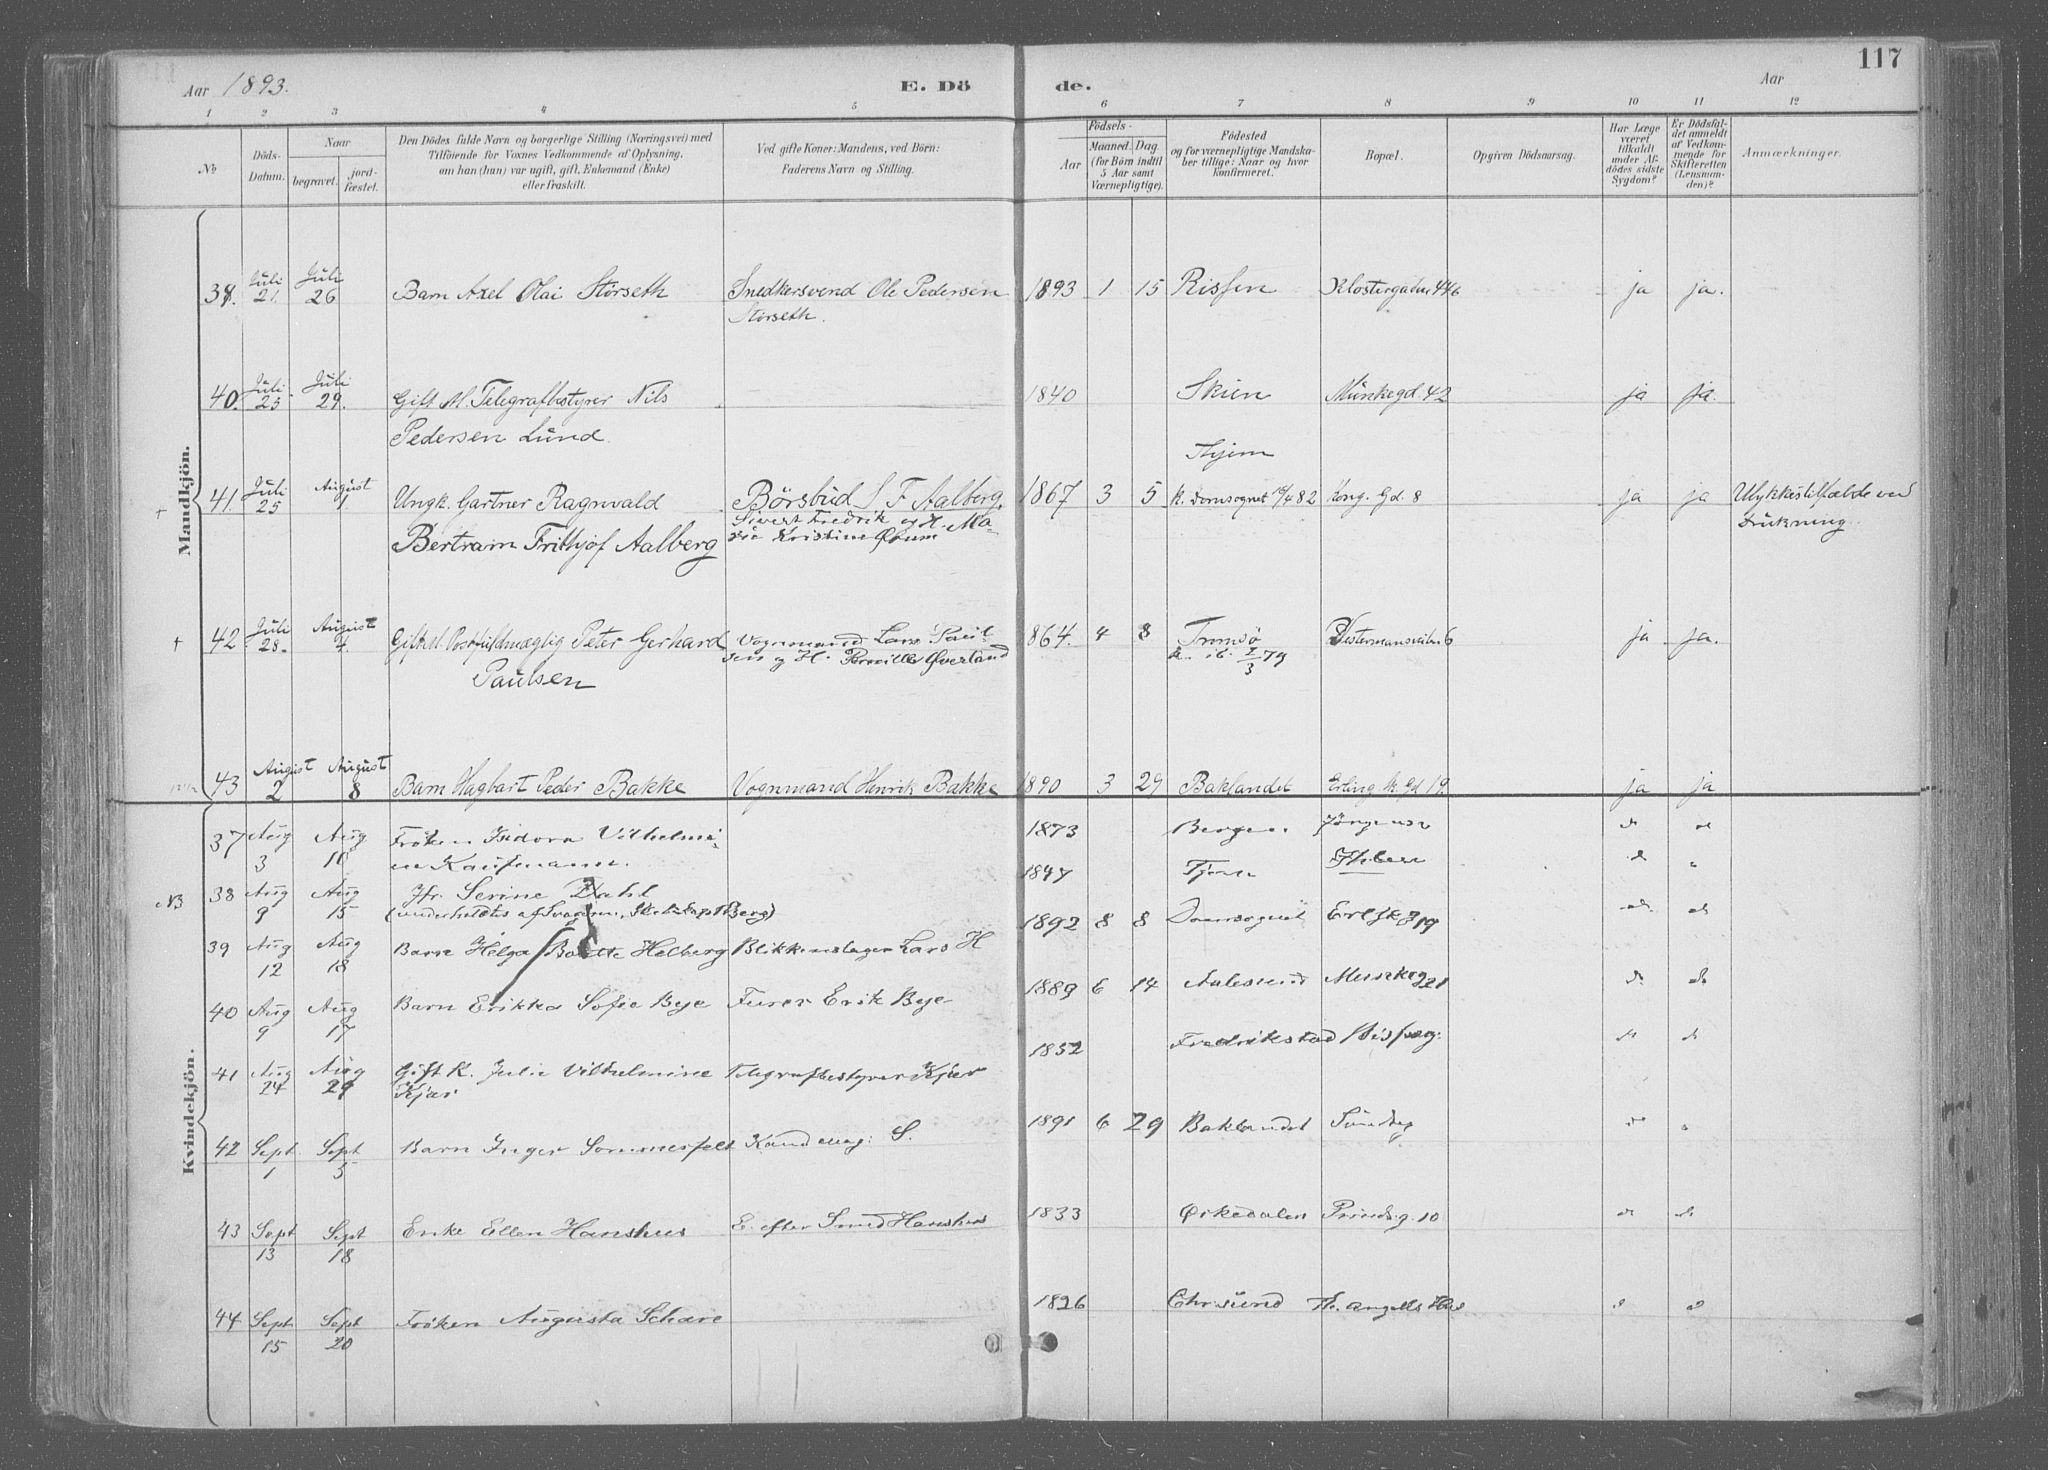 117
Aar 1893.
E. Dö de.
Aar
1 2 3 4 5 6 7 8 9 10 11 12
No
Döds-
Datum.
Naar
begravet.
jord-
fæstet.
Den Dödes fulde Navn og borgerlige Stilling (Næringsvei) med
Tilföiende for Voxnes Vedkommende af Oplysning,
om han (hun) var ugift, gift, Enkemand (Enke)
eller fraskilt.
Ved gifte Koner: Mandens, ved Börn:
Faderens Navn og Stilling.
Födsels-
Aar
Maaned. Dag.
(for Börn indtil
5 Aar samt
Værnepligtige).
Födested
og for værnepligtige Mandska-
ber tillige: Naar og hvor
konfirmeret.
Bopæl.
Opgiven Dödsaarsag.
Har Læge
været
tilkaldt
under Af-
dödes sidste
Sygdom?
Er Dödsfal-
det anmeldt
af Vedkom-
mende for
Skifteretten
(Lensman-
den)?
Anmærkninger.
Mandkjön.
39. Juli 21. Juli 26 Barn Axel Olai Störseth Snedkersvend Ole Pedersen 1893 1 15 Rissen Klostergaden 446 ja ja.
Störseth.
40. Juli 25. Juli 29. Gift M. Telegrafbestyrer Nils 1840 Skien Munkegd. 42 ja ja.
Pedersen Lund.
Thjem
+ 41. Juli 25 August 1 Ungk. Gartner Ragnvald Börsbud S F Aalberg. 1867 3 5 k. Domsognet 82 Kong. Gd. 8 ja ja Ulykkestilfælde ved
Bertram Frithjof Aalberg Sivert Fredrik og H. Ma- Drukning.
rie Kristine
+ 42 Juli 28. August 4. Gift M. Peter Gerhard Vognmand Lars Paul- 1864. 4 8 Tromsö Vestermannveiten 6 ja ja.
Paulsen sen og H. Pernille Øverland k. ib. 2/3 79
43 August 2 August 8 Barn Hagbart Peder Bakke Vognmand Henrik Bakke 1890 3 29 Baklandet Erling Sk. Gd 19. ja ja
Kvindekjön.
37 Aug 3 Aug 11 Fröken Isidora Vilhelmi- 1873 Bergen do do
ne Kaufmann.
NB 38 Aug 9 Aug 15 Jfr. Serine Dahl 1847 Ihlen do
39 Aug 12 Aug 18 Barn Helga Bolette Helberg Blikkenslager Lars H 1892 8 8 Domsognet Erl Sk g 19 do do
40 Aug 9 Aug 17 Barn Erikka Sofie Bye Furer Erik Bye 1889 6 14 Aalesund Munkeg 21 do do
41 Aug 24 Aug 29 Gift K. Julie Vilhelmine Telegrafbestyrer Kjær 1852 Fredrikstad Bispeg. do do
Kjær
42 Sept 1 Sept 5 Barn Inger Sommerfelt Kand mag: S. 1891 6 29 Baklandet Sundg do
43 Sept 13 Sept 18 Enke Ellen Hanshus E. efter Smed Hanshus 1833 Ørkedalen Prindsg. 10 do do
44 Sept 15 Sept 20 Fröken Augusta Schare 1826 Chr.sund Th. Angells Hus